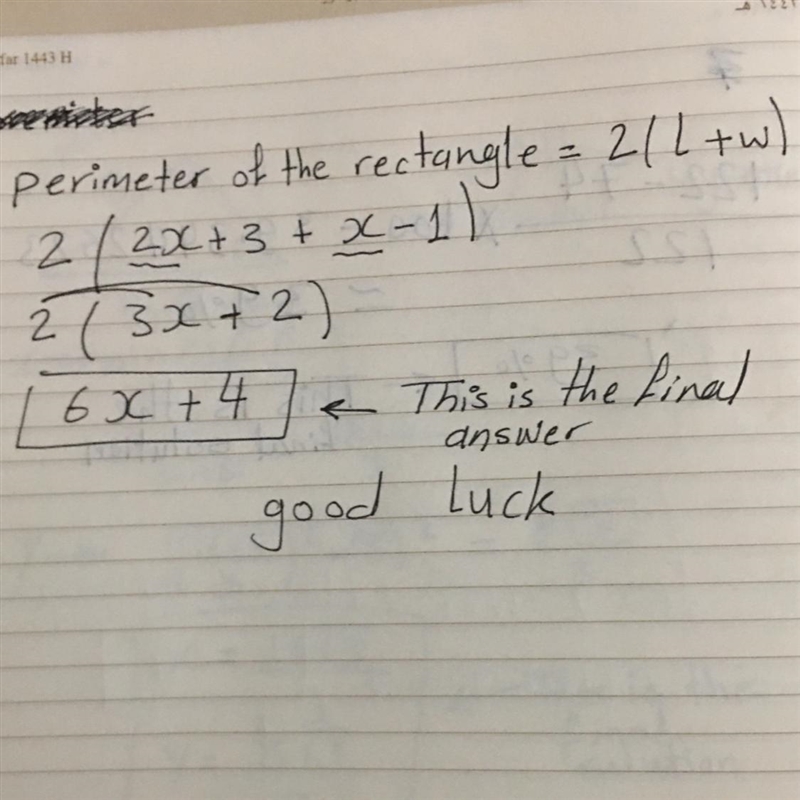 far 1443 H
perimeter of the rectangle = 2(l+w)
2(2x+3+x-1)
2(3x+2)
6x+4 ← This is the final
answer
good luck